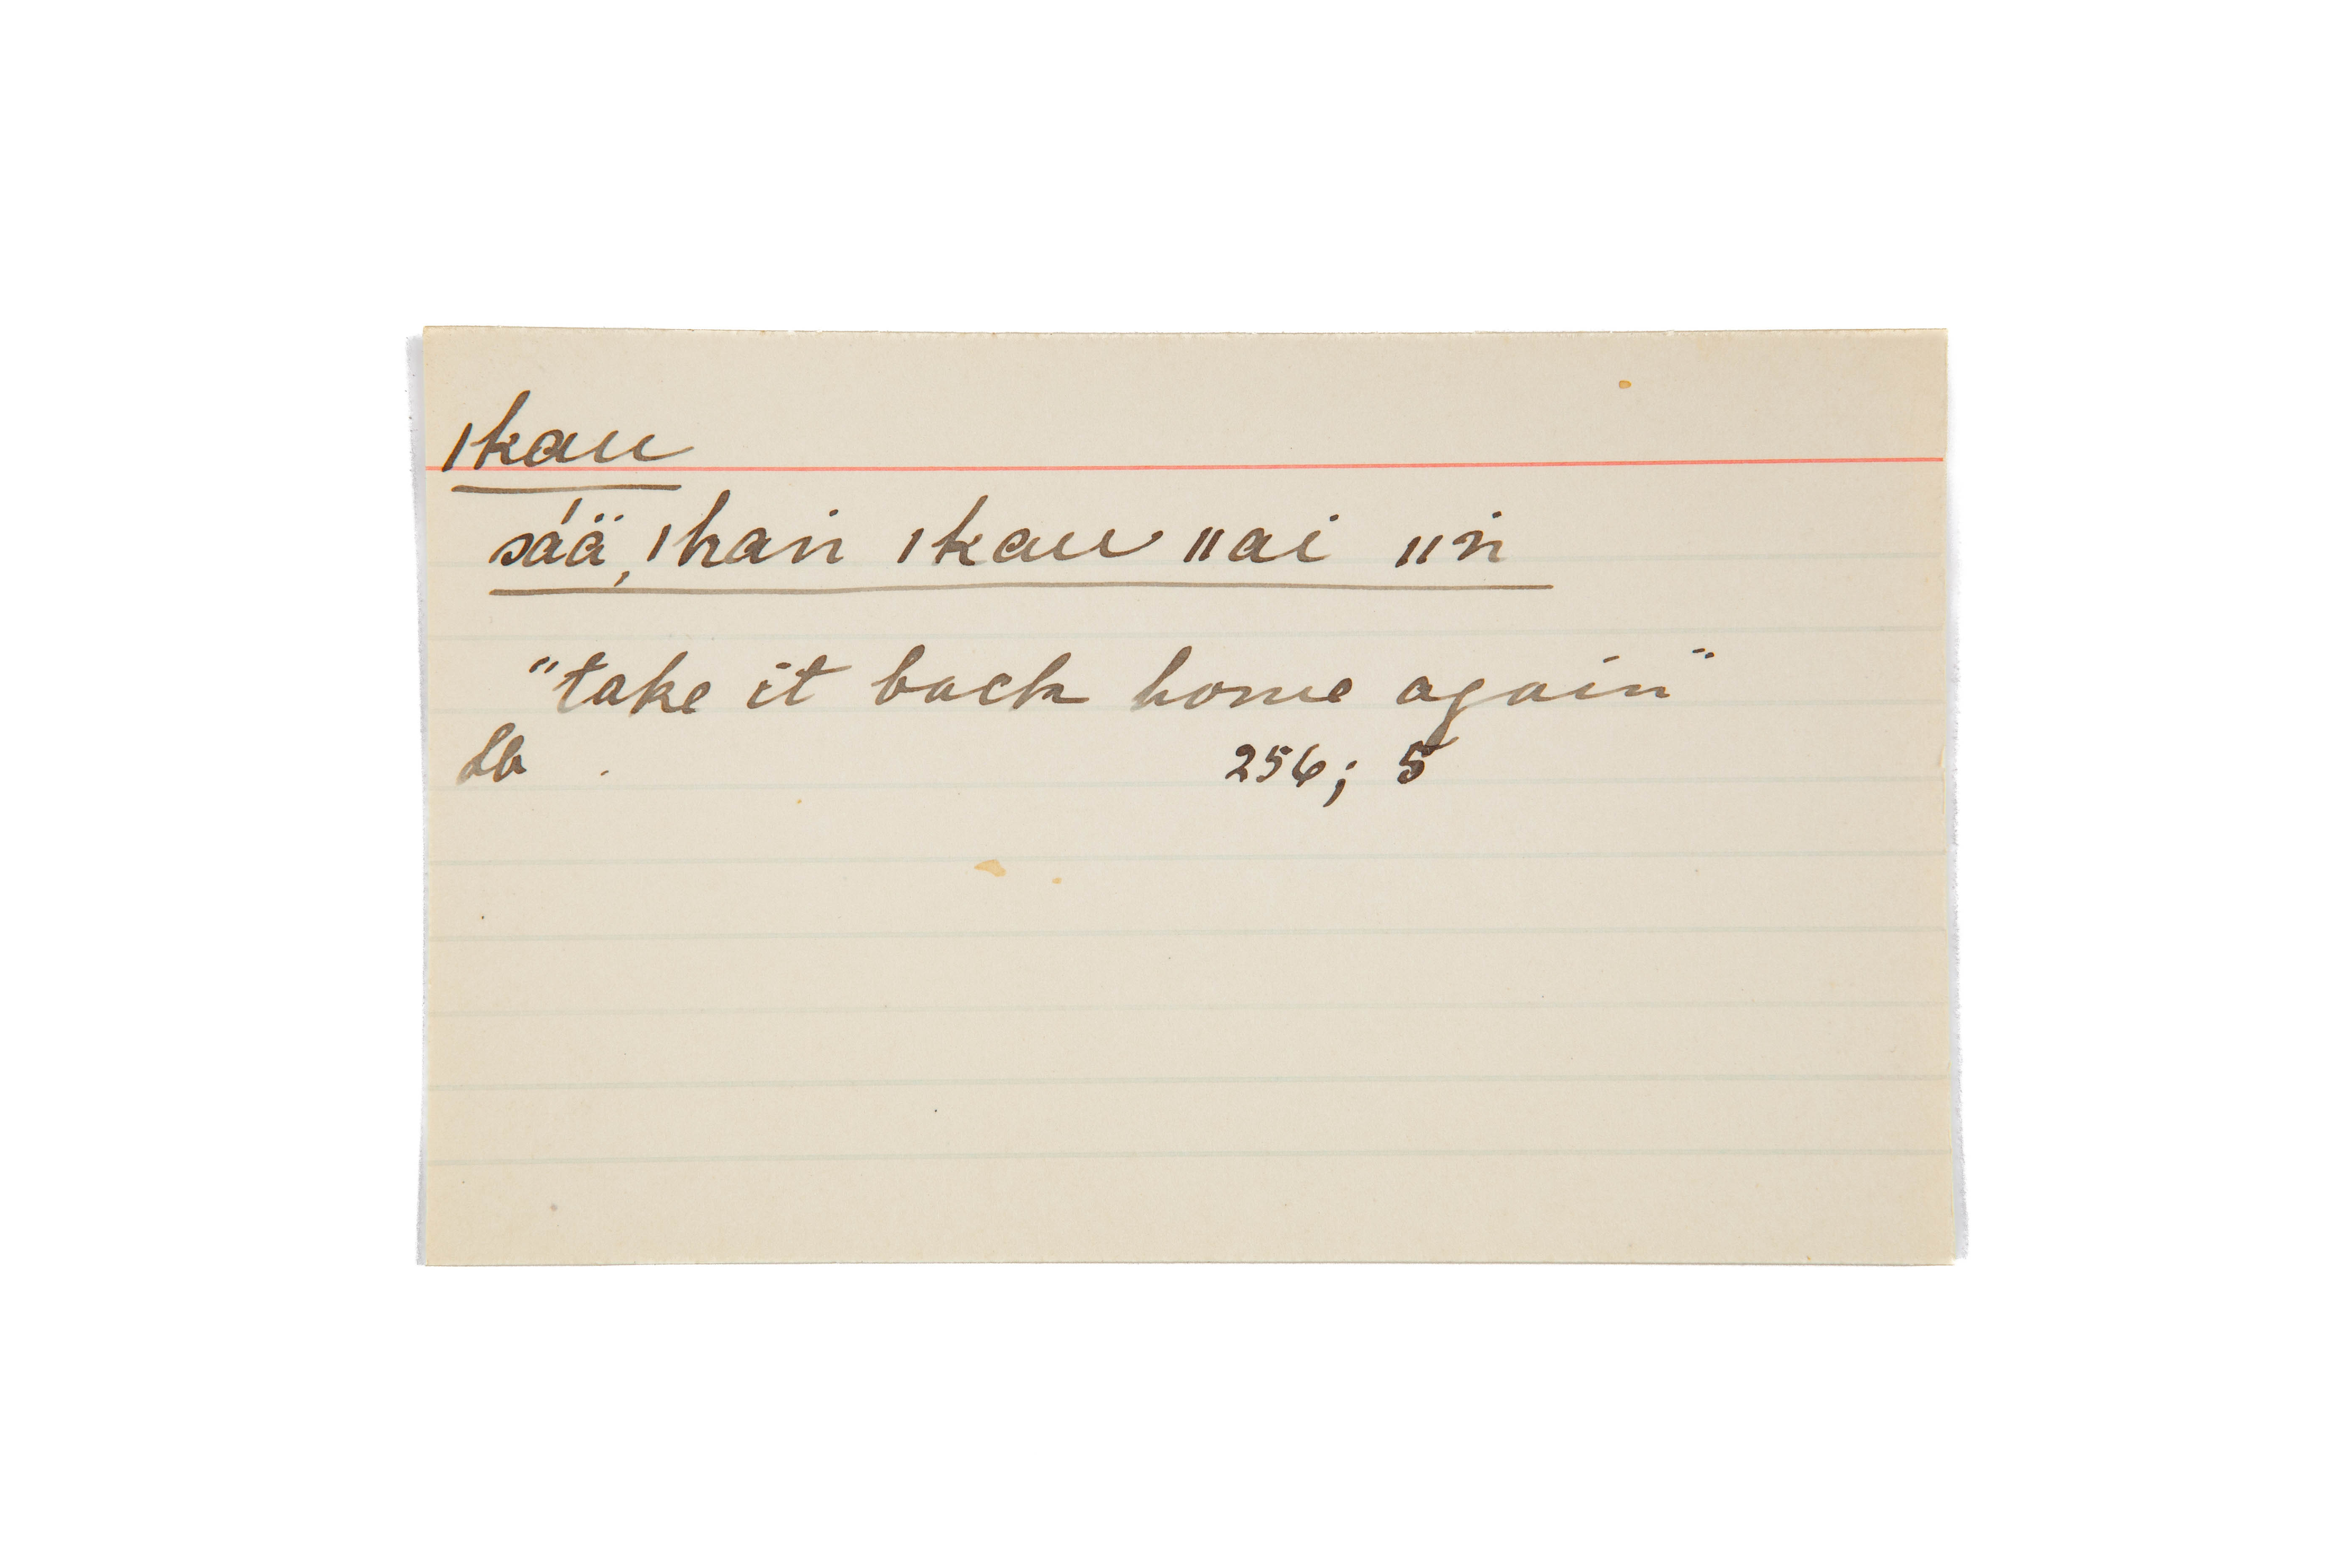 ǀkau
sä́ä, ǀhan ǀkau ǁai ǁn
"take it back home again"
Lb 256; 5